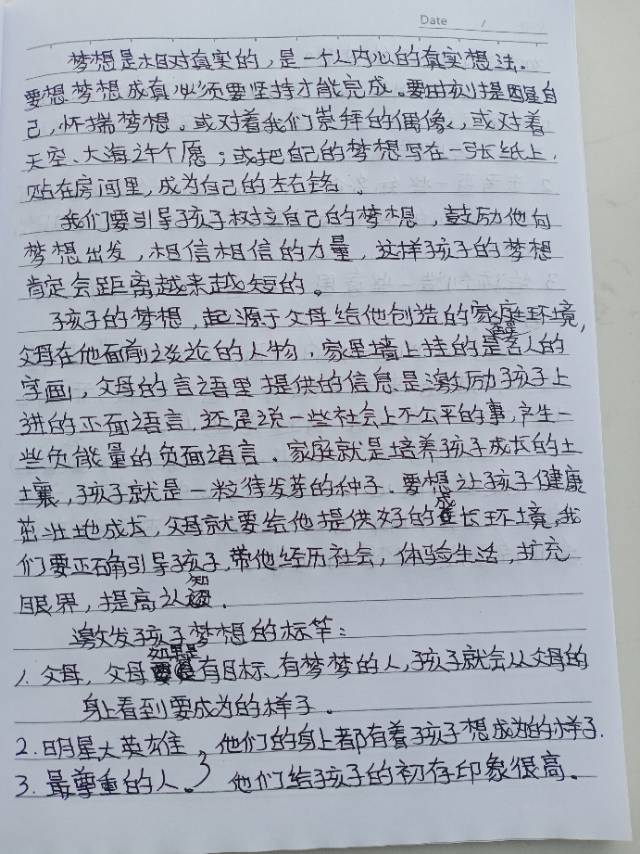 Date /
梦想是相对真实的，是一个人内心的真实想法。
要想梦想成真必须要坚持才能完成。要时刻提醒自
己，怀揣梦想。或对着我们崇拜的偶像，或对着
天空、大海许个愿；或把自己的梦想写在一张纸上，
贴在房间里，成为自己的左右铭。
我们要引导孩子树立自己的梦想，鼓励他向
梦想出发，相信相信的力量，这样孩子的梦想
肯定会距离越来越短的。
孩子的梦想，起源于父母给他创造的家庭环境，
父母在他面前谈论的人物，家里墙上挂的是名人的
字画，父母的言语里提供的信息是激励孩子上
进的正面语言，还是说一些社会上不公平的事，产生一
些负能量的负面语言。家庭就是培养孩子成长的土
土壤，孩子就是一粒待发芽的种子。要想让孩子健康
茁壮地成长，父母就要给他提供好的成长环境，我
们要正确引导孩子，带他经历社会，体验生活，扩充
眼界，提高认知。
激发孩子梦想的标竿：
1. 父母，父母如果是有目标、有梦梦的人，孩子就会从父母的
身上看到要成为的样子。
2. 明星大英雄，他们的身上都有着孩子想成为的样子.
3. 最尊重的人。他们给孩子的初存印象很高。